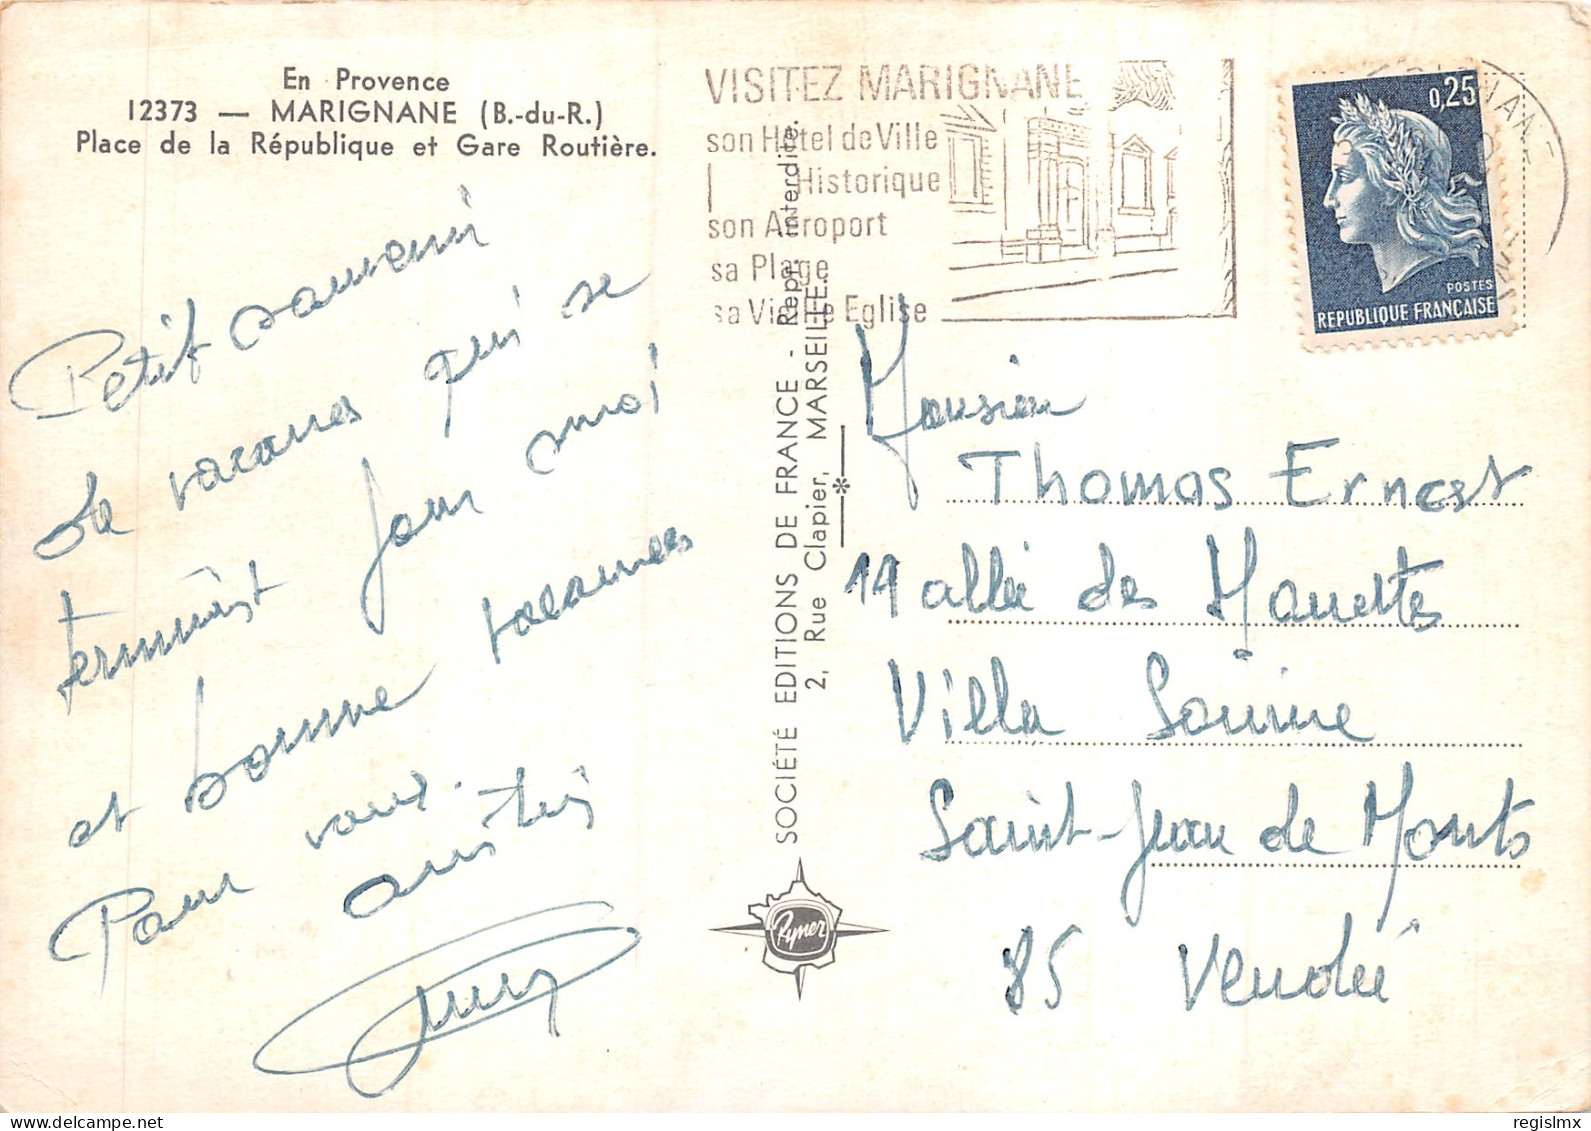 En Provence
12373 — MARIGNANE (B.-du-R.)
Place de la République et Gare Routière.
Petit souvenir
de vacances qui se
terminent pour moi
et bonne vacances
Pour vous.
amitiés
VISITEZ MARIGNANE
son Hôtel de Ville
Historique
son Aéroport
sa Plage
sa Vieille Eglise
SOCIÉTÉ EDITIONS DE FRANCE - Repr. interdite.
2, Rue Clapier, MARSEILLE.
Rymer
0,25
POSTES
REPUBLIQUE FRANÇAISE
MARIGNANE
Monsieur
Thomas Ernest
19 allée des Mouettes
Villa
Saint-Jean de Monts
85 Vendée
regislmx